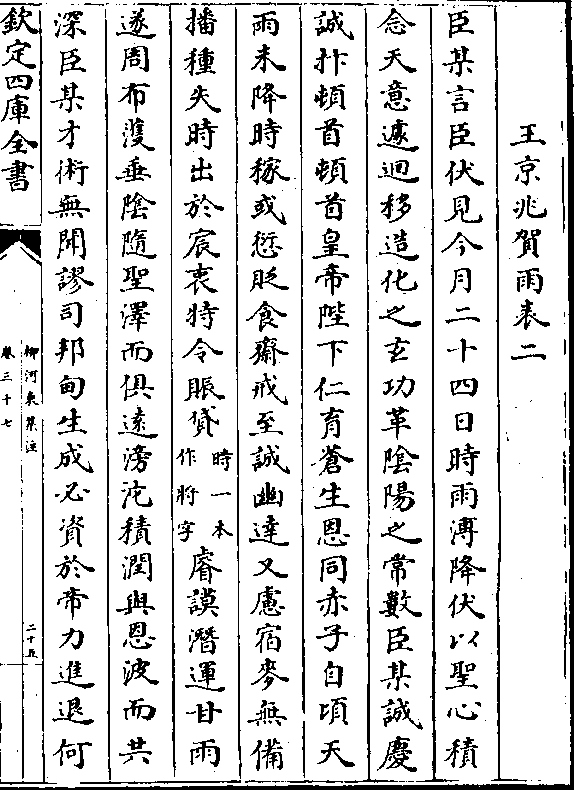 王京兆賀雨表二
臣某言臣伏見今月二十四日時雨溥降伏以聖心積
念天意遽迴移造化之玄功革陰陽之常數臣某誠慶
誠抃頓首頓首皇帝陛下仁育蒼生恩同赤子自頃天
雨未降時稼或愆貶食齋戒至誠幽達又慮宿麥無備
播種失時出於宸衷特令賑貸時一本作將字睿謨潛運甘雨
遂周布濩垂陰隨聖澤而俱遠滂沱積潤與恩波而共
深臣某才術無聞謬司邦甸生成必資於帝力進退何
欽定四庫全書
柳河東集注
卷三十七
二十五